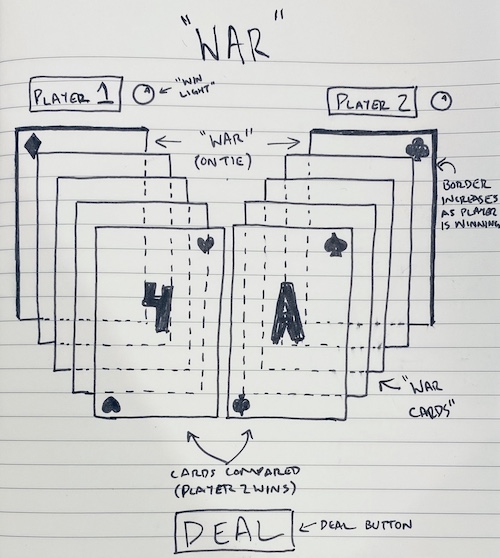 "WAR"
PLAYER 1
"WIN
LIGHT"
PLAYER 2
"WAR"
(ON TIE)
BORDER
INCREASES
AS PLAYER
IS WINNING
4
A
"WAR
CARDS"
CARDS COMPARED
(PLAYER 2 WINS)
DEAL
DEAL BUTTON